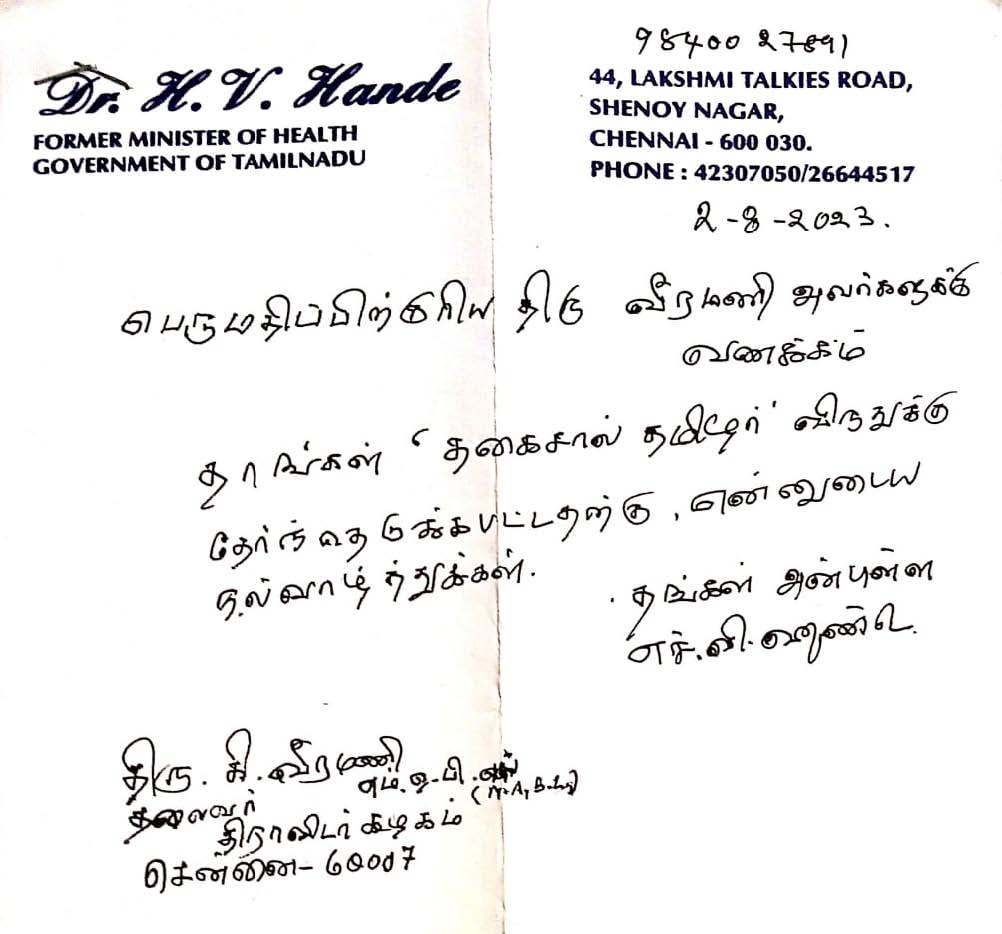 98400 27891
Dr. H. V. Hande
FORMER MINISTER OF HEALTH
GOVERNMENT OF TAMILNADU
44, LAKSHMI TALKIES ROAD,
SHENOY NAGAR,
CHENNAI - 600 030.
PHONE : 42307050/26644517
2-8-2023.
பெருமதிப்பிற்குரிய திரு வீரமணி அவர்களுக்கு
வணக்கம்
தாங்கள் 'தகைசால் தமிழர்' விருதுக்கு
தேர்ந்தெடுக்கபட்டதற்கு, என்னுடைய
நல்வாழ்த்துக்கள்.
தங்கள் அன்புள்ள
எச்.வி.ஹண்டே.
திரு. கி. வீரமணி
எம்.ஏ.பி.எல்
(M.A, B.L)
தலைவர்
திராவிடர் கழகம்
சென்னை - 60007